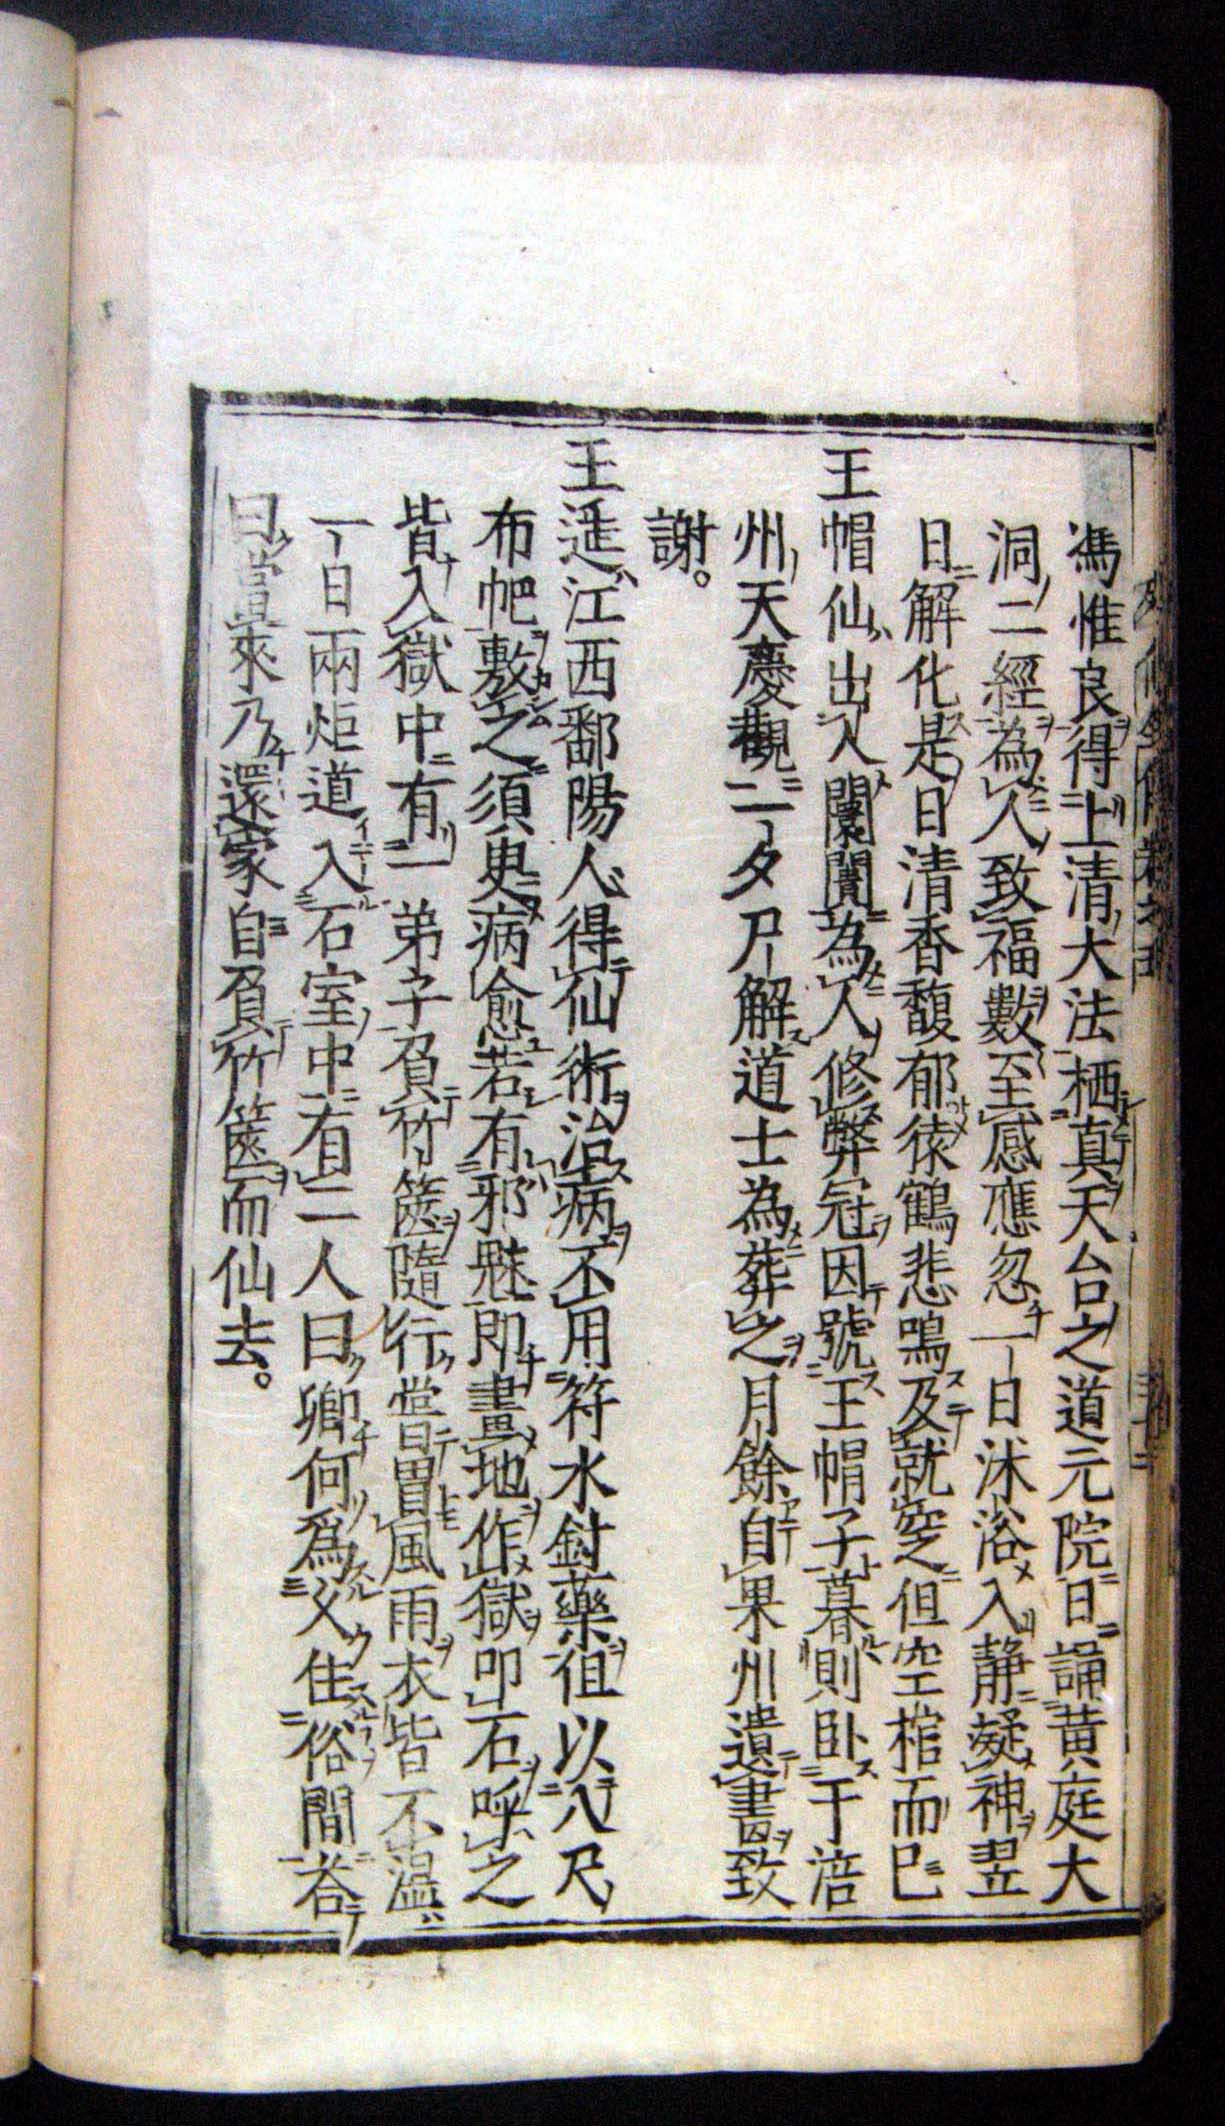 馮惟良得上清大法栖真天台之道元院日誦黄庭大
洞二經為人致福數至感應忽一日沐浴入靜凝神翌
日解化是日清香馥郁猿鶴悲鳴及就窆但空棺而已
王帽仙出入闤闠為人修弊冠因號王帽子暮則卧于涪
州天慶觀一夕尸解道士為葬之月餘自果州遺書致
謝。
王遥江西鄱陽人得仙術治病不用符水針藥徂以八尺
布帊敷之須臾病愈若有邪魅即畫地作獄叩石呼之
皆入獄中有一弟子負竹篋隨行嘗冒風雨衣皆不濕
一日兩炬道入石室中有二人曰卿何為久住俗間答
曰當來乃還家自負竹篋而仙去。